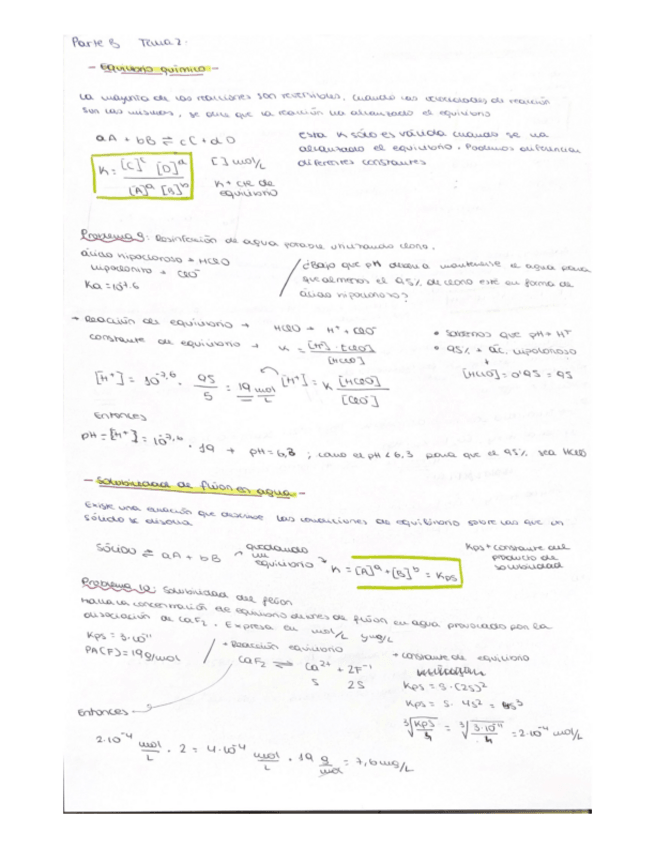 Parte B Tema 2.
- Equilibrio químico -
La mayoría de las reacciones son reversibles, cuando las velocidades de reacción
son las mismas, se dice que la reacción ha alcanzado el equilibrio
aA + bB ⇌ cC + dD
K = [C]^c [D]^d / [A]^a [B]^b
[ ] mol/L
K → cte de
equilibrio
esta K sólo es válida cuando se ha
alcanzado el equilibrio. Podemos diferenciar
diferentes constantes
Problema 9: Desinfección de agua potable utilizando cloro.
ácido hipocloroso → HClO
hipoclorito → ClO⁻
Ka = 10^-7.6
¿Bajo que pH debería mantenerse el agua para
que al menos el 95% de cloro esté en forma de
ácido hipocloroso?
→ Reacción del equilibrio → HClO → H⁺ + ClO⁻
constante de equilibrio → K = [H⁺] · [ClO⁻] / [HClO]
• Sabemos que pH = H⁺
• 95% → ác. hipocloroso
[HClO] = 0'95 = 95
[H⁺] = 10^-7,6 · 95/5 = 19 mol/L
[H⁺] = K [HClO] / [ClO⁻]
Entonces
pH = [H⁺] = 10^-7,6 · 19 → pH = 6,3 ; como el pH < 6,3 para que el 95% sea HClO
- Solubilidad de flúor en agua -
Existe una ecuación que describe las condiciones de equilibrio sobre las que un
sólido se disocia
Sólido ⇌ aA + bB → quedando
un
equilibrio → K = [A]^a + [B]^b = Kps
Kps → constante del
producto de
solubilidad
Problema 10: Solubilidad del flúor
Halla la concentración de equilibrio de iones de flúor en agua provocado por la
disociación de CaF₂. Expresa en mol/L y mg/L
Kps = 3·10^-11
PA(F) = 19 g/mol
→ Reacción equilibrio
CaF₂ ⇌ Ca²⁺ + 2F⁻¹
S 2S
→ constante de equilibrio
Kps = S · (2S)²
Kps = S · 4S² = 4S³
∛(Kps/4) = ∛(3·10^-11/4) = 2·10^-4 mol/L
Entonces
2·10^-4 mol/L · 2 = 4·10^-4 mol/L · 19 g/mol = 7,6 mg/L